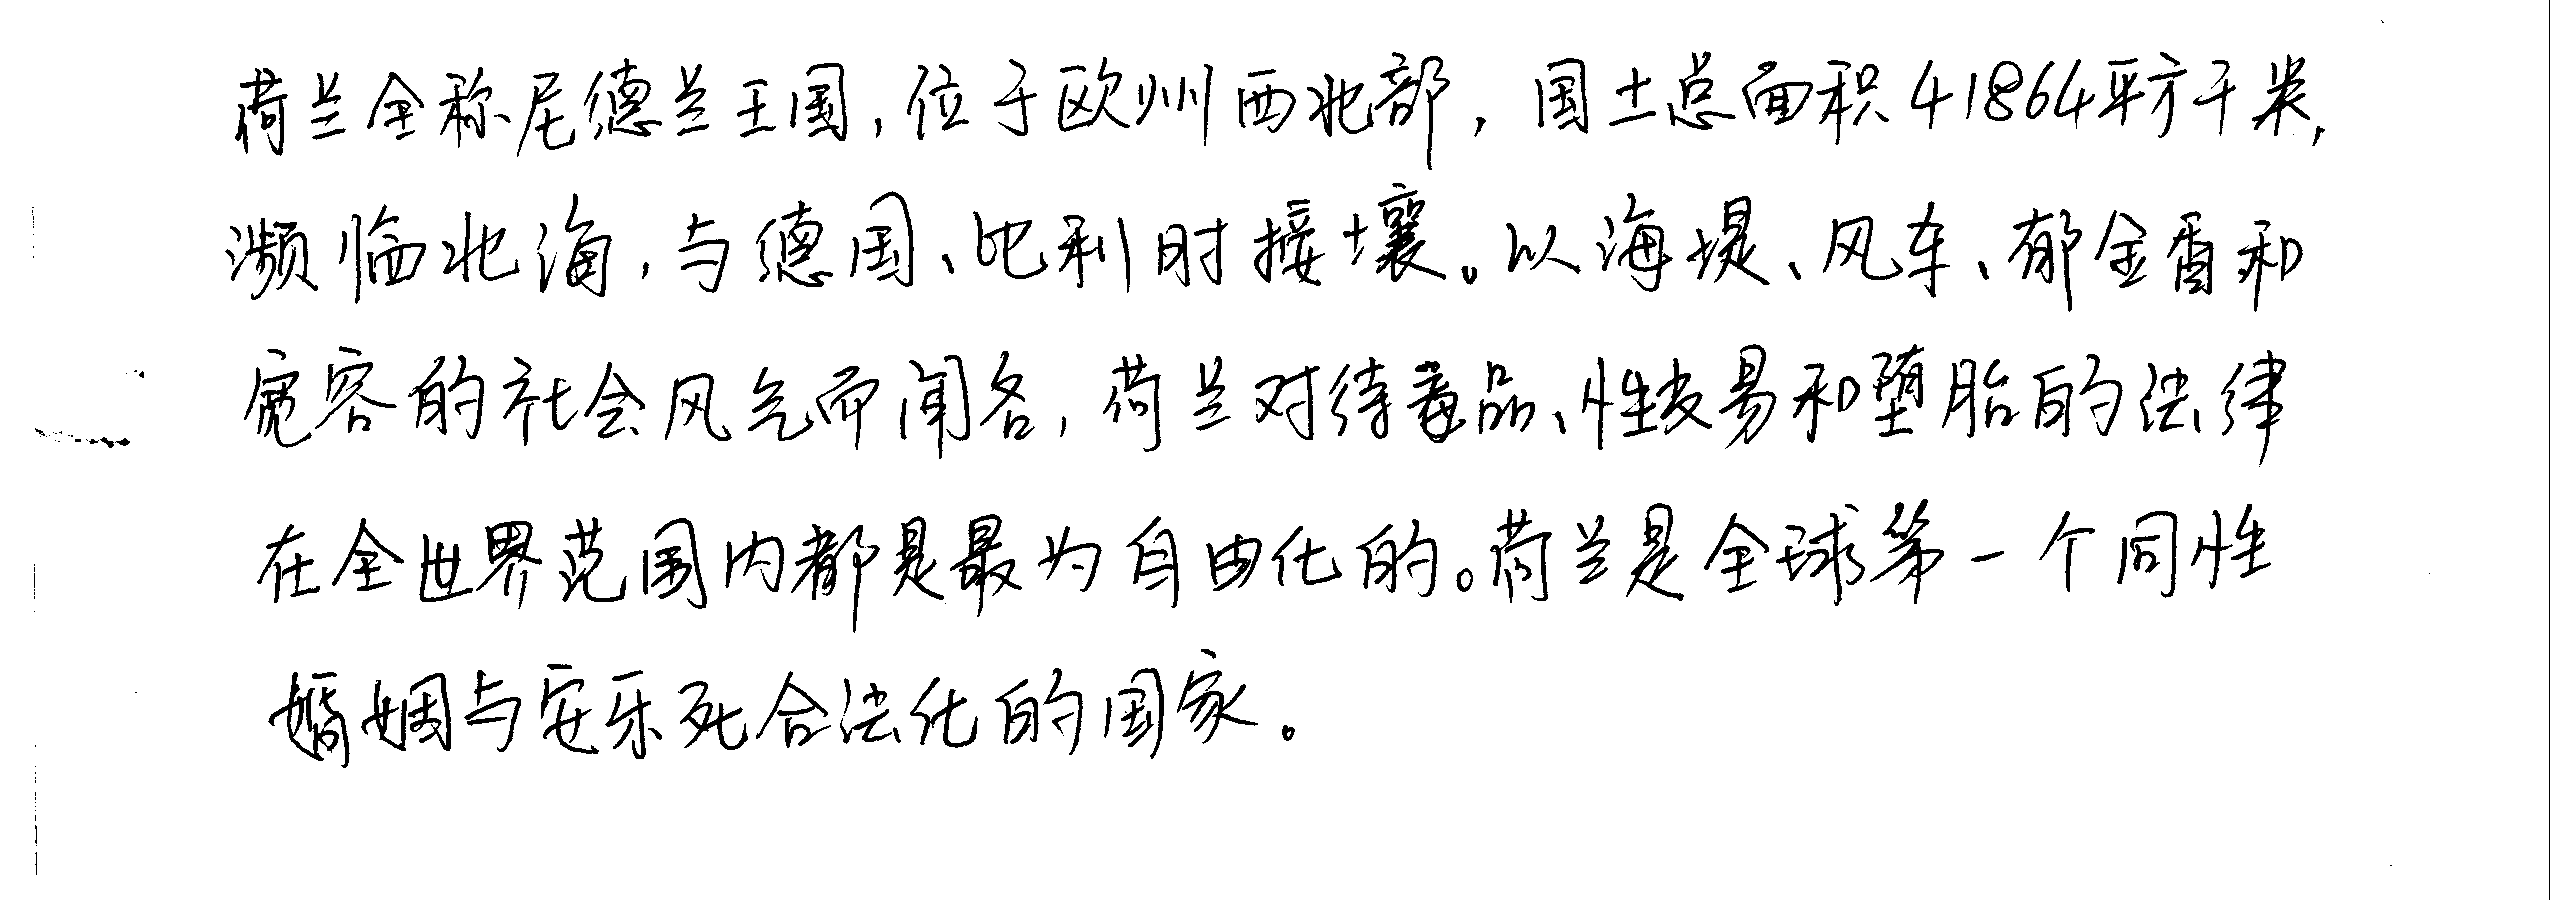 荷兰全称尼德兰王国，位于欧州西北部，国土总面积41864平方千米，
濒临北海，与德国、比利时接壤。以海堤、风车、郁金香和
宽容的社会风气而闻名，荷兰对待毒品、性交易和堕胎的法律
在全世界范围内都是最为自由化的。荷兰是全球第一个同性
婚姻与安乐死合法化的国家。